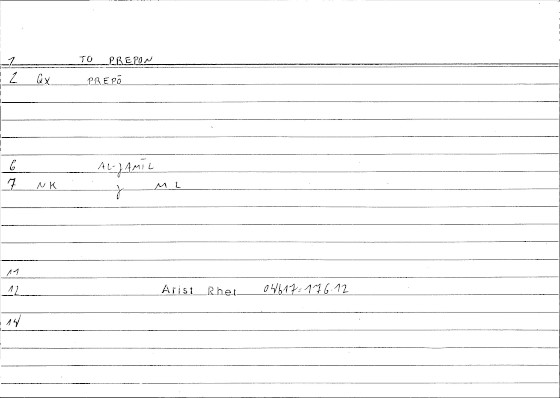 1 TO PREPON
2 Qx PREPŌ
6 AL-JAMĪL
7 NK j M L
11
12 Arist Rhet 04b17:17612
14